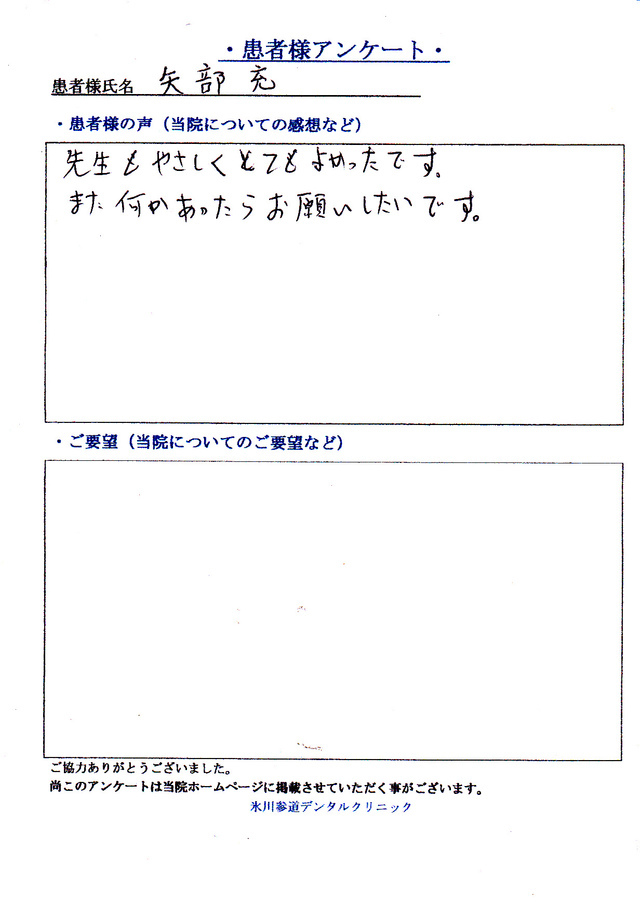 ・患者様アンケート・
患者様氏名 矢部充
・患者様の声（当院についての感想など）
先生もやさしくとてもよかったです。
また何かあったらお願いしたいです。
・ご要望（当院についてのご要望など）
ご協力ありがとうございました。
尚このアンケートは当院ホームページに掲載させていただく事がございます。
氷川参道デンタルクリニック